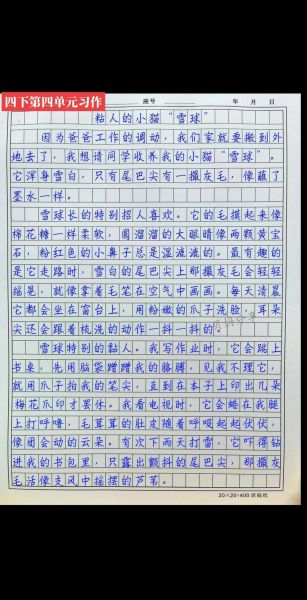 四下第四单元习作
座号
年 月 日
粘人的小猫“雪球”
因为爸爸工作的调动,我们家就要搬到外
地去了,我想请同学收养我的小猫“雪球”。
它浑身雪白,只有尾巴尖有一撮灰毛,像蘸了
墨水一样。
雪球长的特别招人喜欢。它的毛摸起来像
棉花糖一样柔软,圆溜溜的大眼睛像两颗黄宝
石,粉红色的小鼻子总是湿漉漉的。最有趣的
是它走路时,雪白的尾巴尖上那撮灰毛会轻轻
摇晃,就像拿着毛笔在空气中画画。每天清晨
它都会坐在窗台上,用粉嫩的爪子洗脸,耳朵
尖还会跟着梳洗的动作一抖一抖的。
雪球特别的黏人。我写作业时,它会跳上
书桌,先用脑袋蹭蹭我的胳膊,见我不理它,
就用爪子拍我的笔尖,直到在本子上印出几朵
梅花爪印才罢休。我看电视时,它会蜷在我腿
上打呼噜,毛茸茸的肚皮随着呼吸起起伏伏,
像团会动的云朵。有次下雨天打雷,它吓得钻
进我的书包里,只露出颤抖的尾巴尖,那撮灰
毛活像支风中摇摆的芦苇。
20×20=400 原稿纸